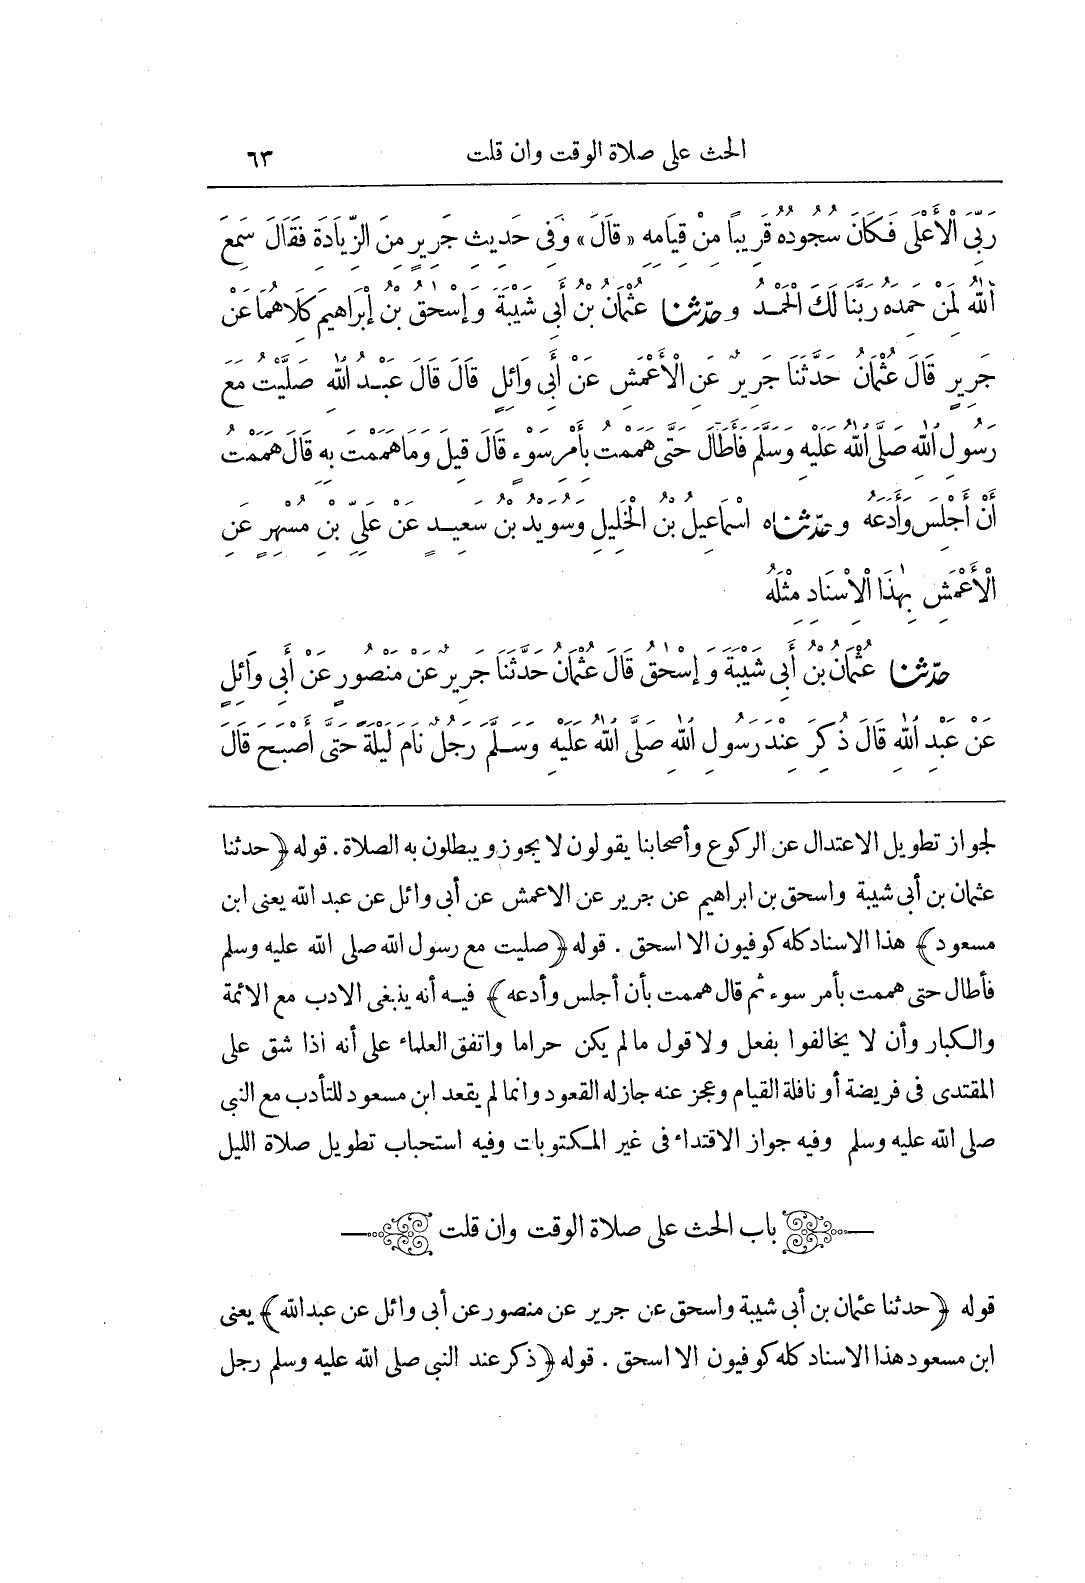 الحث على صلاة الوقت وان قلت ٦٣
رَبِّىَ الْأَعْلَى فَكَانَ سُجُودُهُ قَرِيبًا مِنْ قِيَامِهِ «قَالَ» وَفِى حَدِيثِ جَرِيرٍ مِنَ الزِّيَادَةِ فَقَالَ سَمِعَ
اللّٰهُ لِمَنْ حَمِدَهُ رَبَّنَا لَكَ الْحَمْدُ و حَدَّثَنَا عُثْمَانُ بْنُ أَبِى شَيْبَةَ وَإِسْحٰقُ بْنُ إِبْرَاهِيمَ كِلَاهُمَا عَنْ
جَرِيرٍ قَالَ عُثْمَانُ حَدَّثَنَا جَرِيرٌ عَنِ الْأَعْمَشِ عَنْ أَبِى وَائِلٍ قَالَ قَالَ عَبْدُ اللّٰهِ صَلَّيْتُ مَعَ
رَسُولِ اللّٰهِ صَلَّى اللّٰهُ عَلَيْهِ وَسَلَّمَ فَأَطَالَ حَتَّى هَمَمْتُ بِأَمْرِ سَوْءٍ قَالَ قِيلَ وَمَا هَمَمْتَ بِهِ قَالَ هَمَمْتُ
أَنْ أَجْلِسَ وَأَدَعَهُ و حَدَّثَنَاه اسْمَاعِيلُ بْنُ الْخَلِيلِ وَسُوَيْدُ بْنُ سَعِيدٍ عَنْ عَلِىِّ بْنِ مُسْهِرٍ عَنِ
الْأَعْمَشِ بِهٰذَا الْاِسْنَادِ مِثْلَهُ
حَدَّثَنَا عُثْمَانُ بْنُ أَبِى شَيْبَةَ وَ إِسْحٰقُ قَالَ عُثْمَانُ حَدَّثَنَا جَرِيرٌ عَنْ مَنْصُورٍ عَنْ أَبِى وَائِلٍ
عَنْ عَبْدِ اللّٰهِ قَالَ ذُكِرَ عِنْدَ رَسُولِ اللّٰهِ صَلَّى اللّٰهُ عَلَيْهِ وَسَلَّمَ رَجُلٌ نَامَ لَيْلَةً حَتَّى أَصْبَحَ قَالَ
لجواز تطويل الاعتدال عن الركوع وأصحابنا يقولون لا يجوز ويبطلون به الصلاة . قوله ﴿حدثنا
عثمان بن أبى شيبة واسحق بن ابراهيم عن جرير عن الاعمش عن أبى وائل عن عبد الله يعنى ابن
مسعود﴾ هذا الاسناد كله كوفيون الا اسحق . قوله ﴿صليت مع رسول الله صلى الله عليه وسلم
فأطال حتى هممت بأمر سوء ثم قال هممت بأن أجلس وأدعه﴾ فيه أنه ينبغى الادب مع الائمة
والكبار وأن لا يخالفوا بفعل ولا قول مالم يكن حراما واتفق العلماء على أنه اذا شق على
المقتدى فى فريضة أو نافلة القيام وعجز عنه جاز له القعود وانما لم يقعد ابن مسعود للتأدب مع النبى
صلى الله عليه وسلم وفيه جواز الاقتداء فى غير المكتوبات وفيه استحباب تطويل صلاة الليل
باب الحث على صلاة الوقت وان قلت
قوله ﴿حدثنا عثمان بن أبى شيبة واسحق عن جرير عن منصور عن أبى وائل عن عبد الله﴾ يعنى
ابن مسعود هذا الاسناد كله كوفيون الا اسحق . قوله ﴿ذكر عند النبى صلى الله عليه وسلم رجل